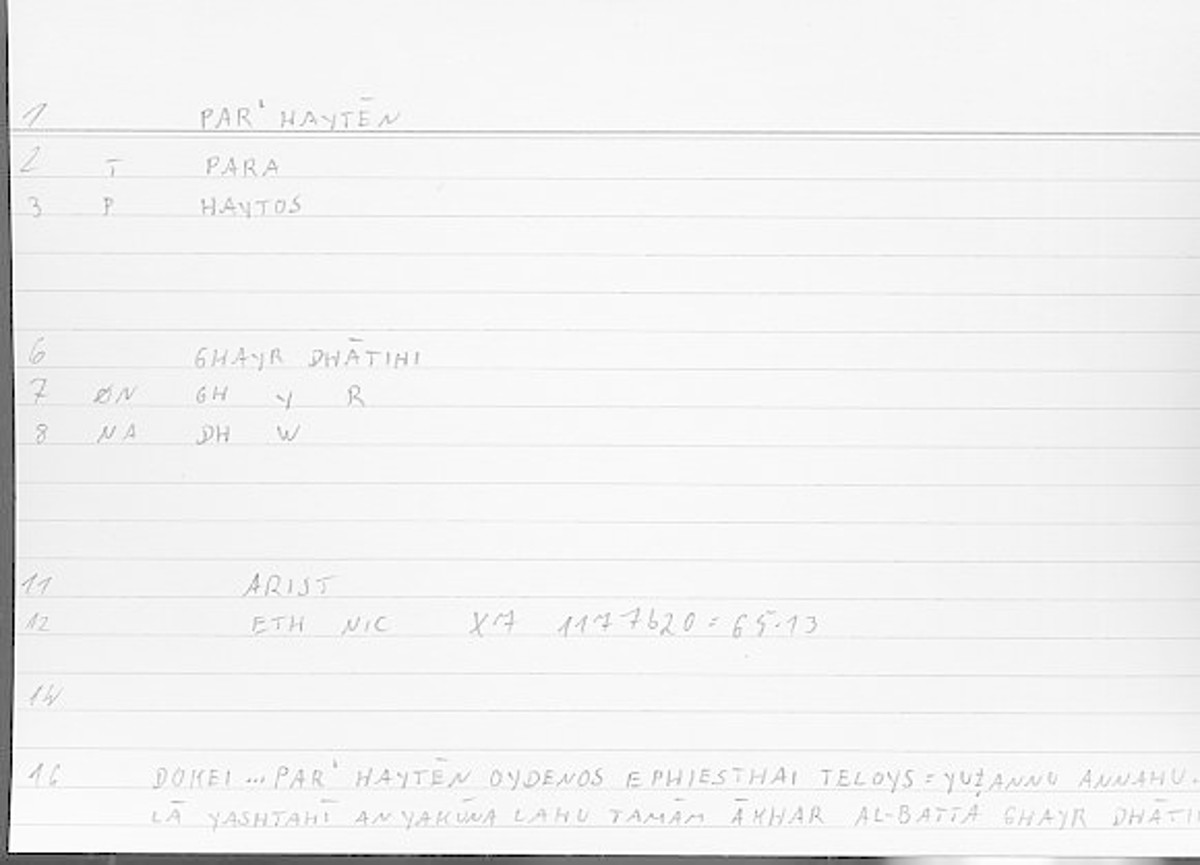 1 PAR' HAYTĒN
2 T PARA
3 P HAYTOS
6 GHAYR DHĀTIHI
7 ØN GH Y R
8 NA DH W
11 ARIST
12 ETH NIC X7 1177b20 = 65.13
14
16 DOKEI ... PAR' HAYTĒN OYDENOS EPHIESTHAI TELOYS = YUẒANNU ANNAHU.
LĀ YASHTAHĪ AN YAKŪNA LAHU TAMĀM ĀKHAR AL-BATTA GHAYR